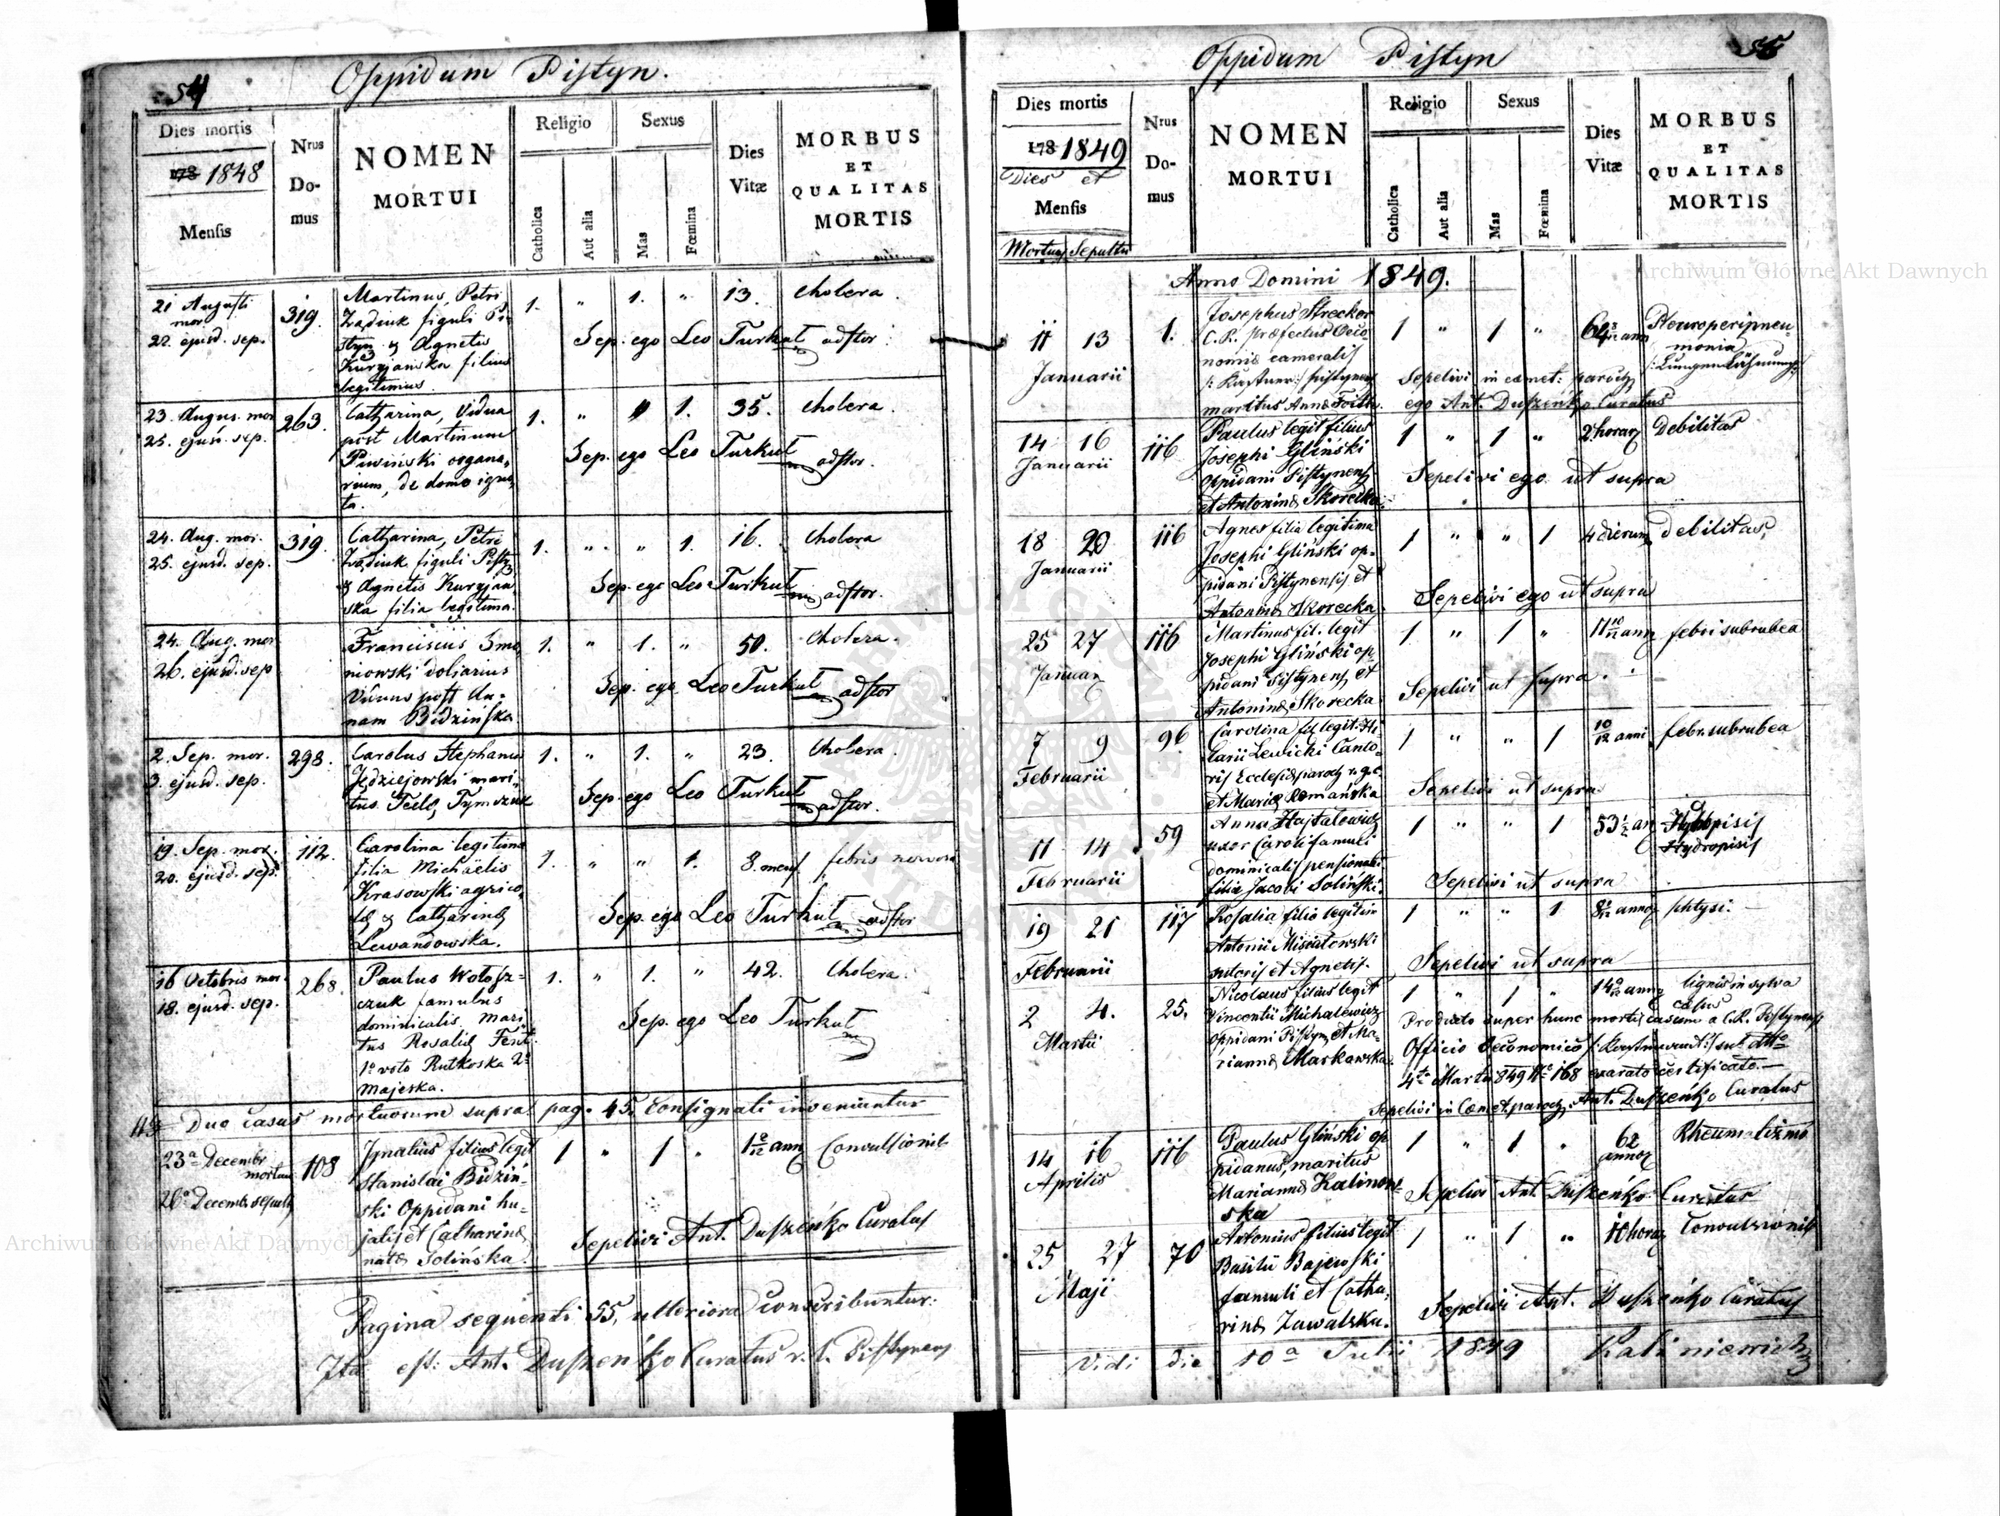 54
Oppidum Pistyn.
Dies mortis
178 1848
Mensis
Nrus Domus
NOMEN
MORTUI
Religio
Catholica
Aut alia
Sexus
Mas
Fœmina
Dies Vitæ
MORBUS
ET
QUALITAS
MORTIS
21 Augusti mor.
22. ejusd. sep.
319.
Martinus, Petri
figuli Pi-
styn & Agnetis
filius
legitimus.
1. " 1. " 13. Cholera.
Sep. ego Leo Turkut adstor:
23. Augus. mor
25. ejusd. sep.
263.
Catharina, Vidua
post Martinum
Piwiński organa-
rium, de domo igno-
ta.
1. " 1. 35. Cholera.
Sep. ego Leo Turkut adstor.
24. Aug. mor.
25. ejusd. sep.
319.
Catharina, Petri
figuli Pistyn
& Agnetis
ska filia legitima.
1. " " 1. 16. Cholera
Sep. ego Leo Turkut adstor.
24. Aug. mor
26. ejusd. sep
Franciscus
niowski doliarius
Viduus post An-
nam Bidzińska.
1. " 1. " 50. Cholera.
Sep. ego Leo Turkut adstor
2. Sep. mor.
3. ejusd. sep.
298.
Carolus Stephanus
Jędziejowski mari-
tus Teclę Tymczuk
1. " 1. " 23. Cholera.
Sep. ego Leo Turkut adstor.
19. Sep. mor.
20. ejusd. sep.
112.
Carolina legitima
filia Michaëlis
Krasowski agrico-
lę & Catharinę
Lewandowska.
1. " " 1. 8. mens febris nervosa
Sep. ego Leo Turkut adstor
16 Octobris mor.
18. ejusd. sep.
268.
Paulus Wołosz-
czuk famulus
dominicalis mari-
tus Rosalię
1º voto Rutkoska 2º
Majeska.
1. " 1. " 42. Cholera.
Sep. ego Leo Turkut
Duo casus mortuorum supra pag. 45. consignati inveniuntur
23ª Decembr
mortuus
26ª Decembr sepult
108
Ignatius filius legit
Stanislai Bidziń-
ski Oppidani hu-
jatis et Catharinę
natę Solińska.
1 " 1 " Convulsionib
Sepelivi Ant. Duszeńko Curatus
Pagina sequenti 55, ulteriora conscribuntur.
Ita est: Ant. Duszeńko Curatus r. l. Pistynens
55
Oppidum Pistyn
Dies mortis
178 1849
Dies et
Mensis
Mortuus Sepultus
Nrus Domus
NOMEN
MORTUI
Religio
Catholica
Aut alia
Sexus
Mas
Fœmina
Dies Vitæ
MORBUS
ET
QUALITAS
MORTIS
Anno Domini 1849.
11 13
Januarii
1.
Josephus Strecker
C. R. præfectus Oeco-
nomię cameralis
/: Kastner :/ Pistynens
maritus Annę
1 " 1 "
Sepelivi in cœmet: paroch
ego Ant. Duszeńko Curatus
14 16
Januarii
116
Paulus legit filius
Josephi Gliński
oppidani Pistynens
et Antoninę Skorecka
1 " 1 " 2 horar Debilitas
Sepelivi ego ut supra
18 20
Januarii
116
Agnes filia legitima
Josephi Gliński op-
pidani Pistynensis et
Antoninę Skorecka.
1 " " 1 4 dierum debilitas,
Sepelivi ego ut supra
25 27
Januar
116
Martinus fil. legit
Josephi Gliński op-
pidani Pistynens, et
Antoninę Skorecka
1 " 1 " febri subrubea
Sepelivi ut supra.
7 9
Februarii
96.
Carolina fil legit. Hi-
larii Lewicki Canto-
ris Ecclesię paroch r. g. c.
et Marię Romańska
1 " " 1 10/12 anni febr. subrubea
Sepelivi ut supra
11 14
Februarii
59
Anna Hajtalowicz
uxor Caroli famuli
dominicalis pensionati
filia Jacobi Soliński.
1 " " 1 53 1/2 an
Hydropisis
Sepelivi ut supra
19 21
Februarii
117
Rosalia filia legitim
Antonii
sutoris et Agnetis.
1 " " 1 phtysi.
Sepelivi ut supra
2 4.
Martii
25.
Nicolaus filius legit
Vincentii Michalewicz
oppidani Pistyn, et Ma-
riannę Markowska.
1 " 1 " lignis in sylva
cæsus
Producto super hunc mortis casum a C. R. Pistynens
Officio Oeconomico /: Kastneramt :/ sub
4ta Martii 849 Nro 168 exarato certificato.—
Sepelivi in Cœmet. paroch. Ant. Duszeńko Curatus
14 16
Aprilis
116
Paulus Gliński op
pidanus, maritus
Mariannę Kalinow-
ska
1 " 1 " 62 annor Rheumatizmo
Sepelivi Ant. Duszeńko Curatus
25 27
Maji
70
Antonius filius legit
Basilii Bajewski
famuli et Catha-
rinę Zawalska.
1 " 1 " 10 horar Convulsionib
Sepelivi Ant. Duszeńko Curatus
Vidi die 10ª Julii 1849
Archiwum Główne Akt Dawnych
Archiwum Główne Akt Dawnych